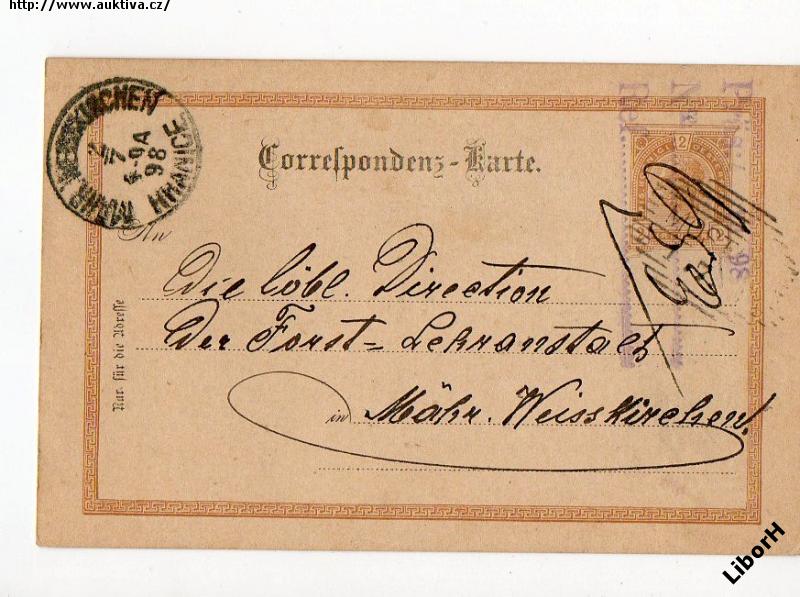 http://www.auktiva.cz/
MÄHR. WEISSKIRCHEN
HRANICE
98
2
Correspondenz-Karte.
An
Die löbl. Direction
Der Forst=Lehranstalt
in Mähr. Weisskirchen.
Nur für die Adresse
98
LiborH